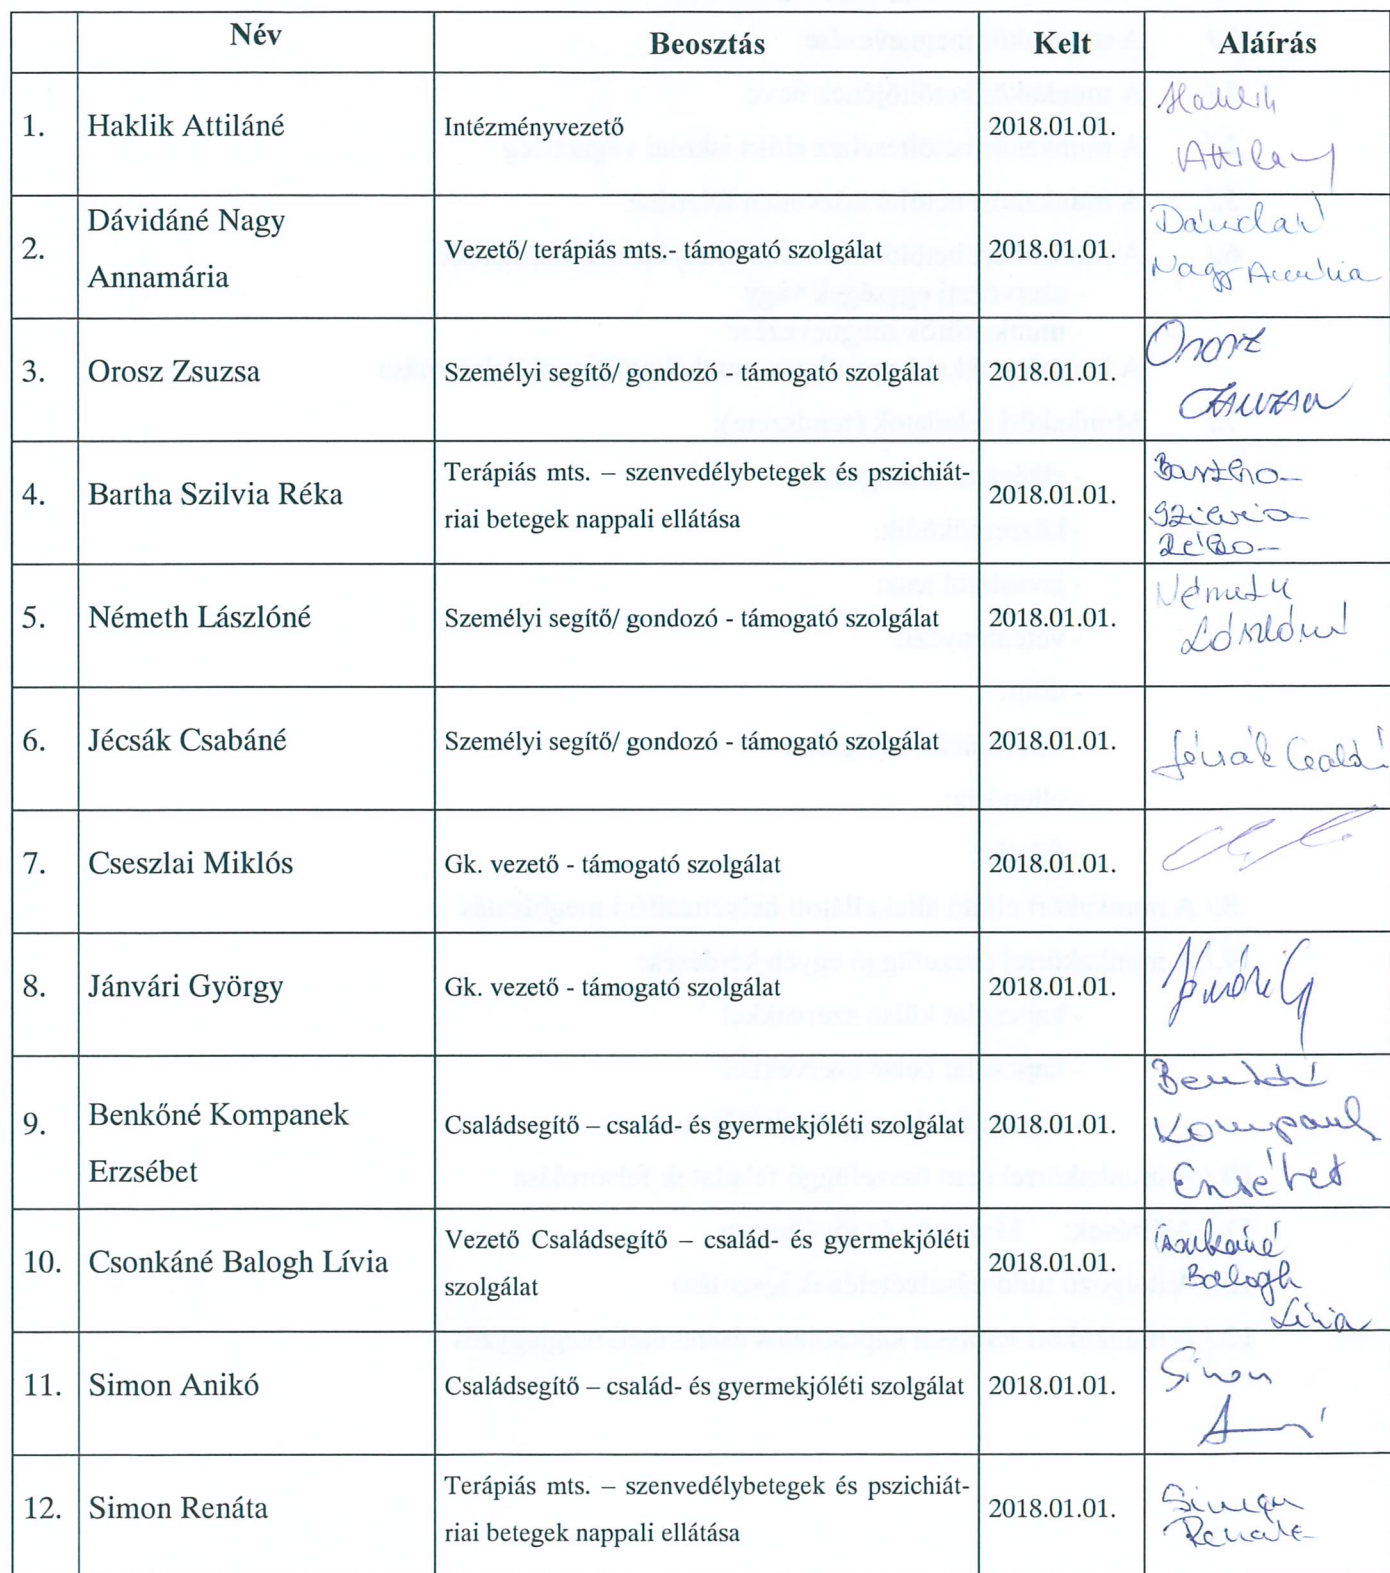 Név Beosztás Kelt Aláírás
1. Haklik Attiláné Intézményvezető 2018.01.01. Haklik
Attilány
2. Dávidáné Nagy
Annamária Vezető/ terápiás mts.- támogató szolgálat 2018.01.01. Dávidáné
Nagy Annamária
3. Orosz Zsuzsa Személyi segítő/ gondozó - támogató szolgálat 2018.01.01. Orosz
Zsuzsa
4. Bartha Szilvia Réka Terápiás mts. – szenvedélybetegek és pszichiát-
riai betegek nappali ellátása 2018.01.01. Bartha
Szilvia
Réka
5. Németh Lászlóné Személyi segítő/ gondozó - támogató szolgálat 2018.01.01. Németh
Lászlóné
6. Jécsák Csabáné Személyi segítő/ gondozó - támogató szolgálat 2018.01.01. Jécsák Csabáné
7. Cseszlai Miklós Gk. vezető - támogató szolgálat 2018.01.01.
8. Jánvári György Gk. vezető - támogató szolgálat 2018.01.01. Jánvári Gy
9. Benkőné Kompanek
Erzsébet Családsegítő – család- és gyermekjóléti szolgálat 2018.01.01. Benkőné
Kompanek
Erzsébet
10. Csonkáné Balogh Lívia Vezető Családsegítő – család- és gyermekjóléti
szolgálat 2018.01.01. Csonkáné
Balogh
Lívia
11. Simon Anikó Családsegítő – család- és gyermekjóléti szolgálat 2018.01.01. Simon
12. Simon Renáta Terápiás mts. – szenvedélybetegek és pszichiát-
riai betegek nappali ellátása 2018.01.01. Simon
Renáta